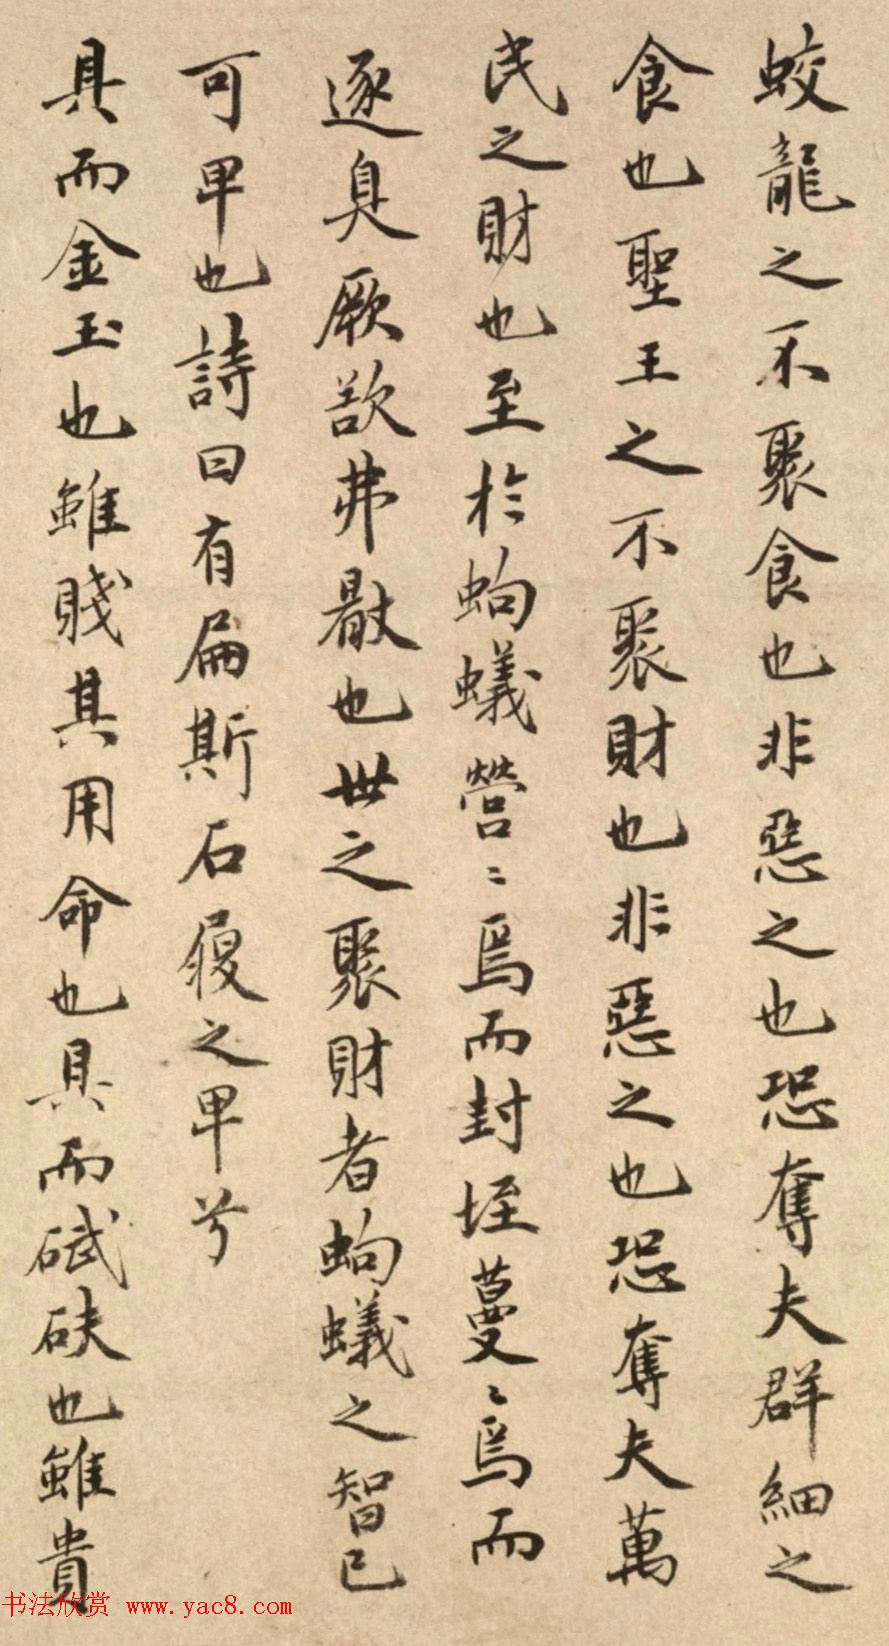 蛟龍之不聚食也非惡之也恐奪夫群細之
食也聖王之不聚財也非惡之也恐奪夫萬
民之財也至於蚼蟻營〻焉而封垤蔓〻焉而
逐臭厥欲弗厭也世之聚財者蚼蟻之智已
可卑也詩曰有扁斯石履之卑兮
具而金玉也雖賤其用命也具而碔砆也雖貴
书法欣赏 www.yac8.com